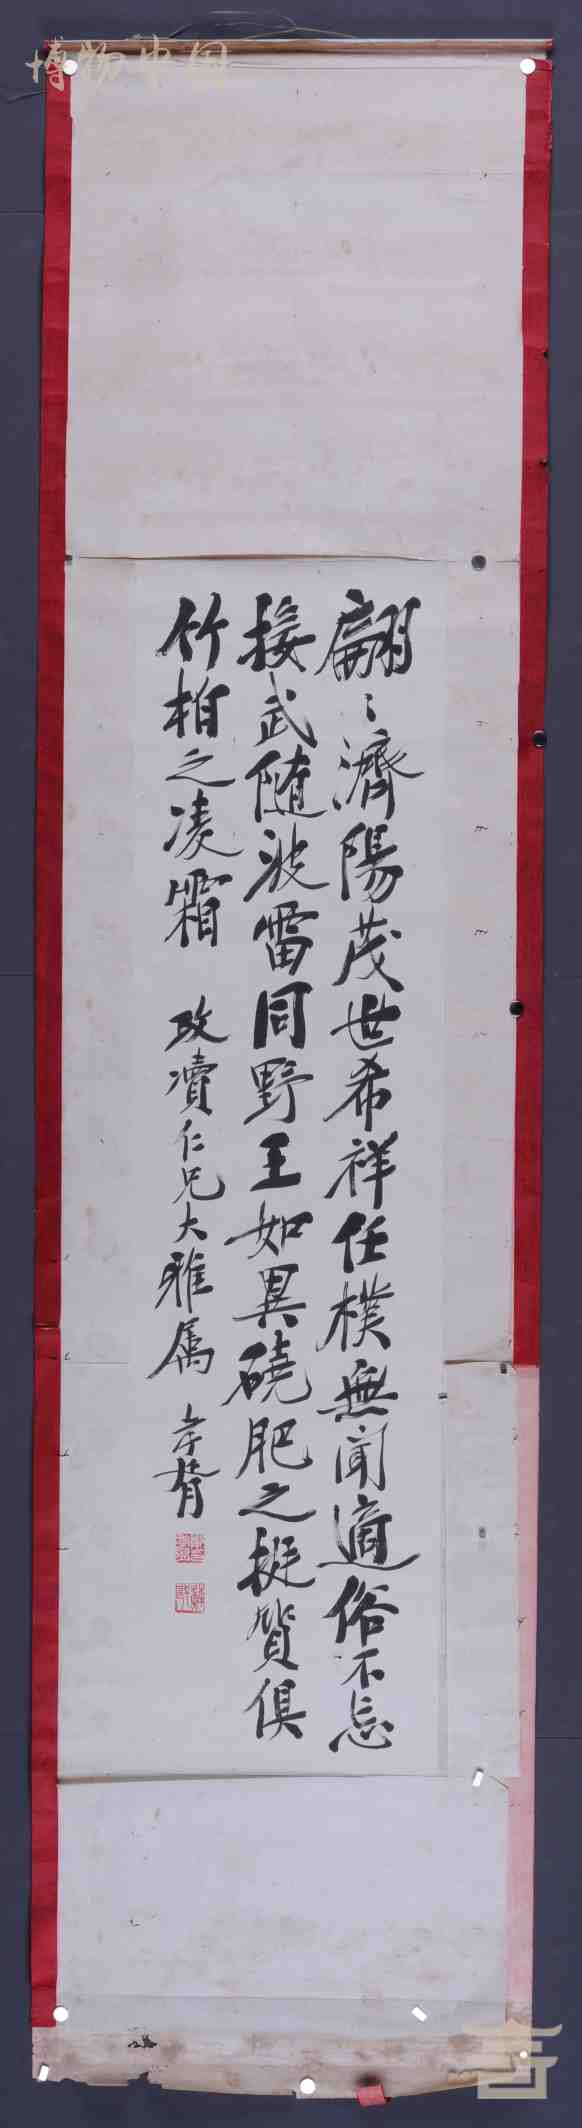 博物中国
翩〻濟陽茂世希祥任樸無聞適俗不忘
接武隨波雷同野王如異磽肥之挺質俱
竹柏之凌霜
政凟仁兄大雅属
孝胥